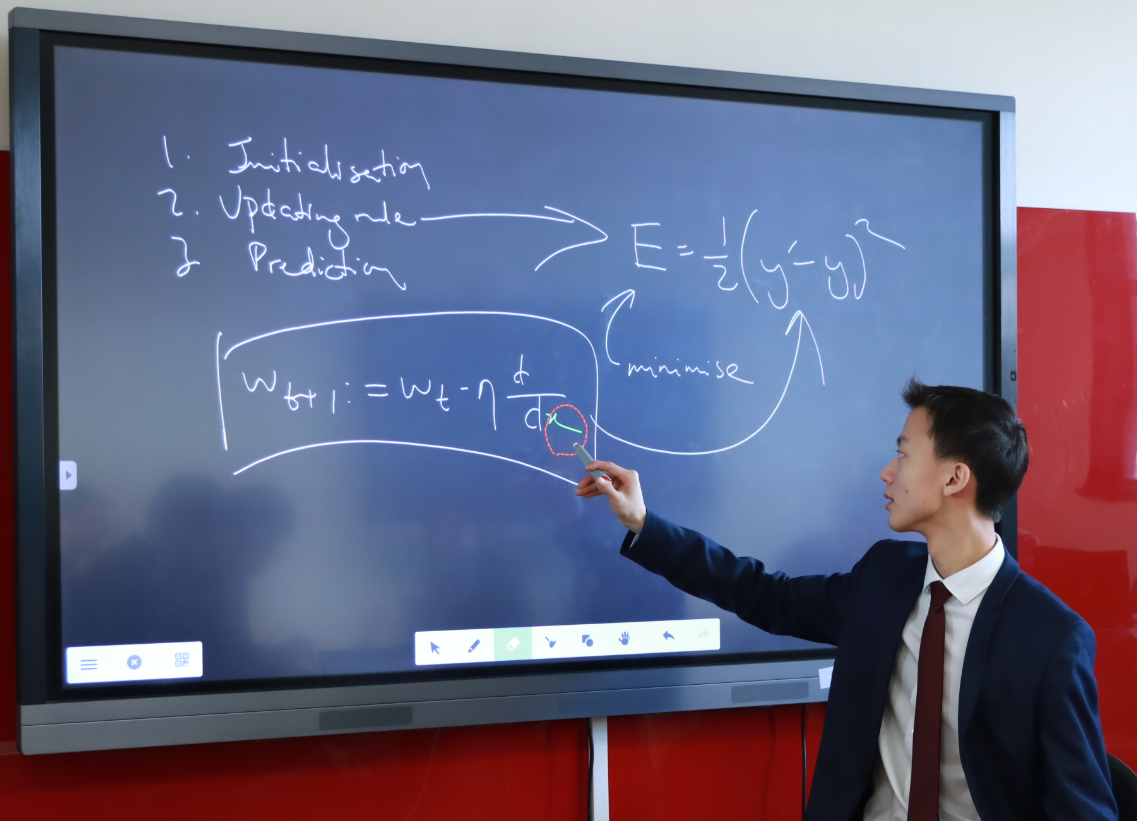 1. Initialisation
2. Updating rule
3 Prediction
E = 1/2 (y' - y)²
minimise
w_{t+1} := w_t - η d/dx